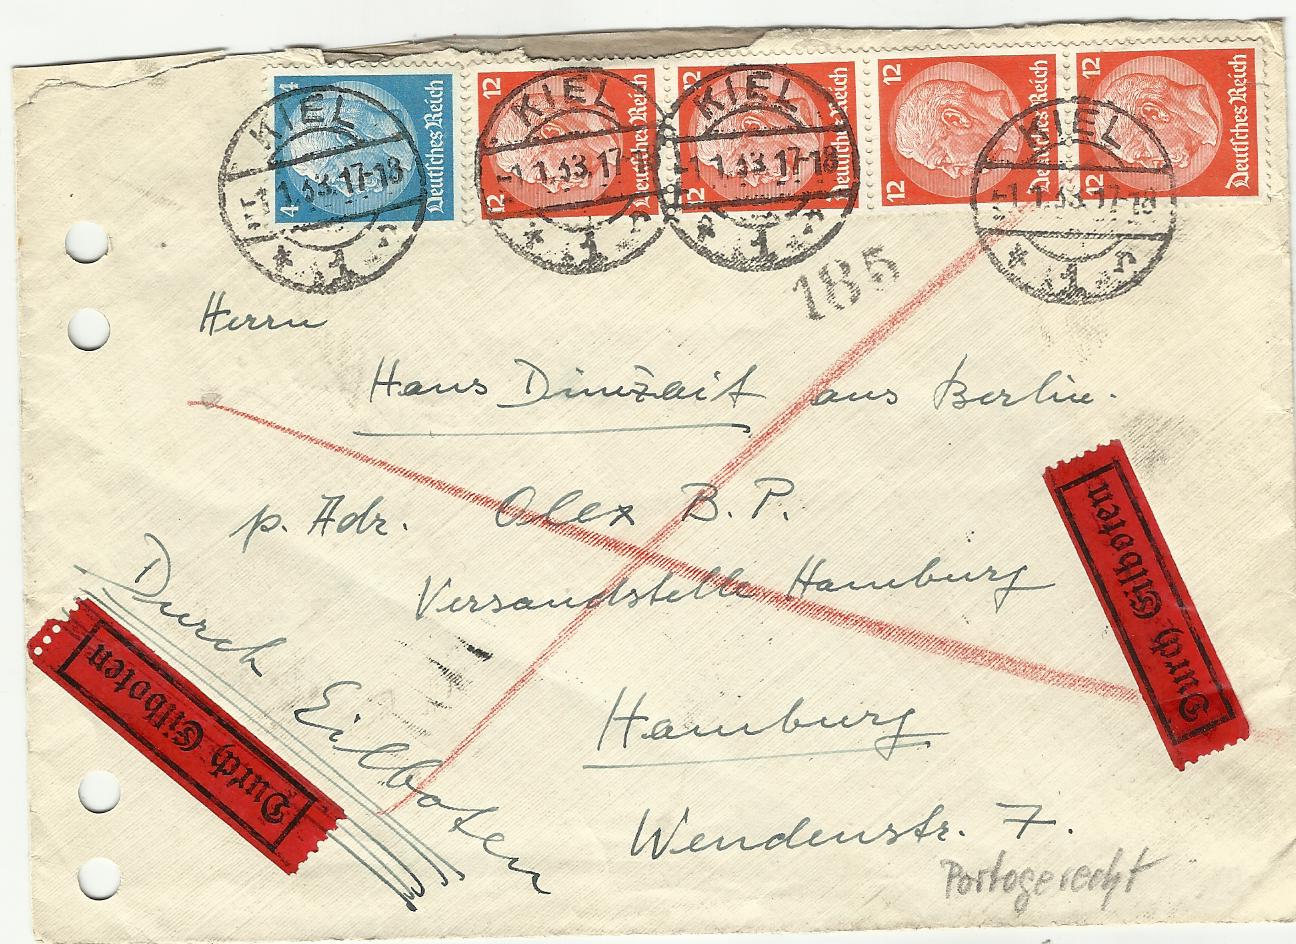 4 4 Deutsches Reich
12 12 Deutsches Reich
12 12 Deutsches Reich
12 12 Deutsches Reich
12 12 Deutsches Reich
KIEL
-1.1.33.17-18
* 1 n
KIEL
-1.1.33.17-18
* 1 n
KIEL
-1.1.33.17-18
* 1 n
KIEL
-1.1.33.17-18
* 1 n
185
Herrn
Hans aus Berlin.
p. Adr. Olex B.P.
Versandstelle Hamburg
Durch Eilboten
Durch Eilboten
Durch Eilboten
Hamburg
Wendenstr. 7.
Portogerecht